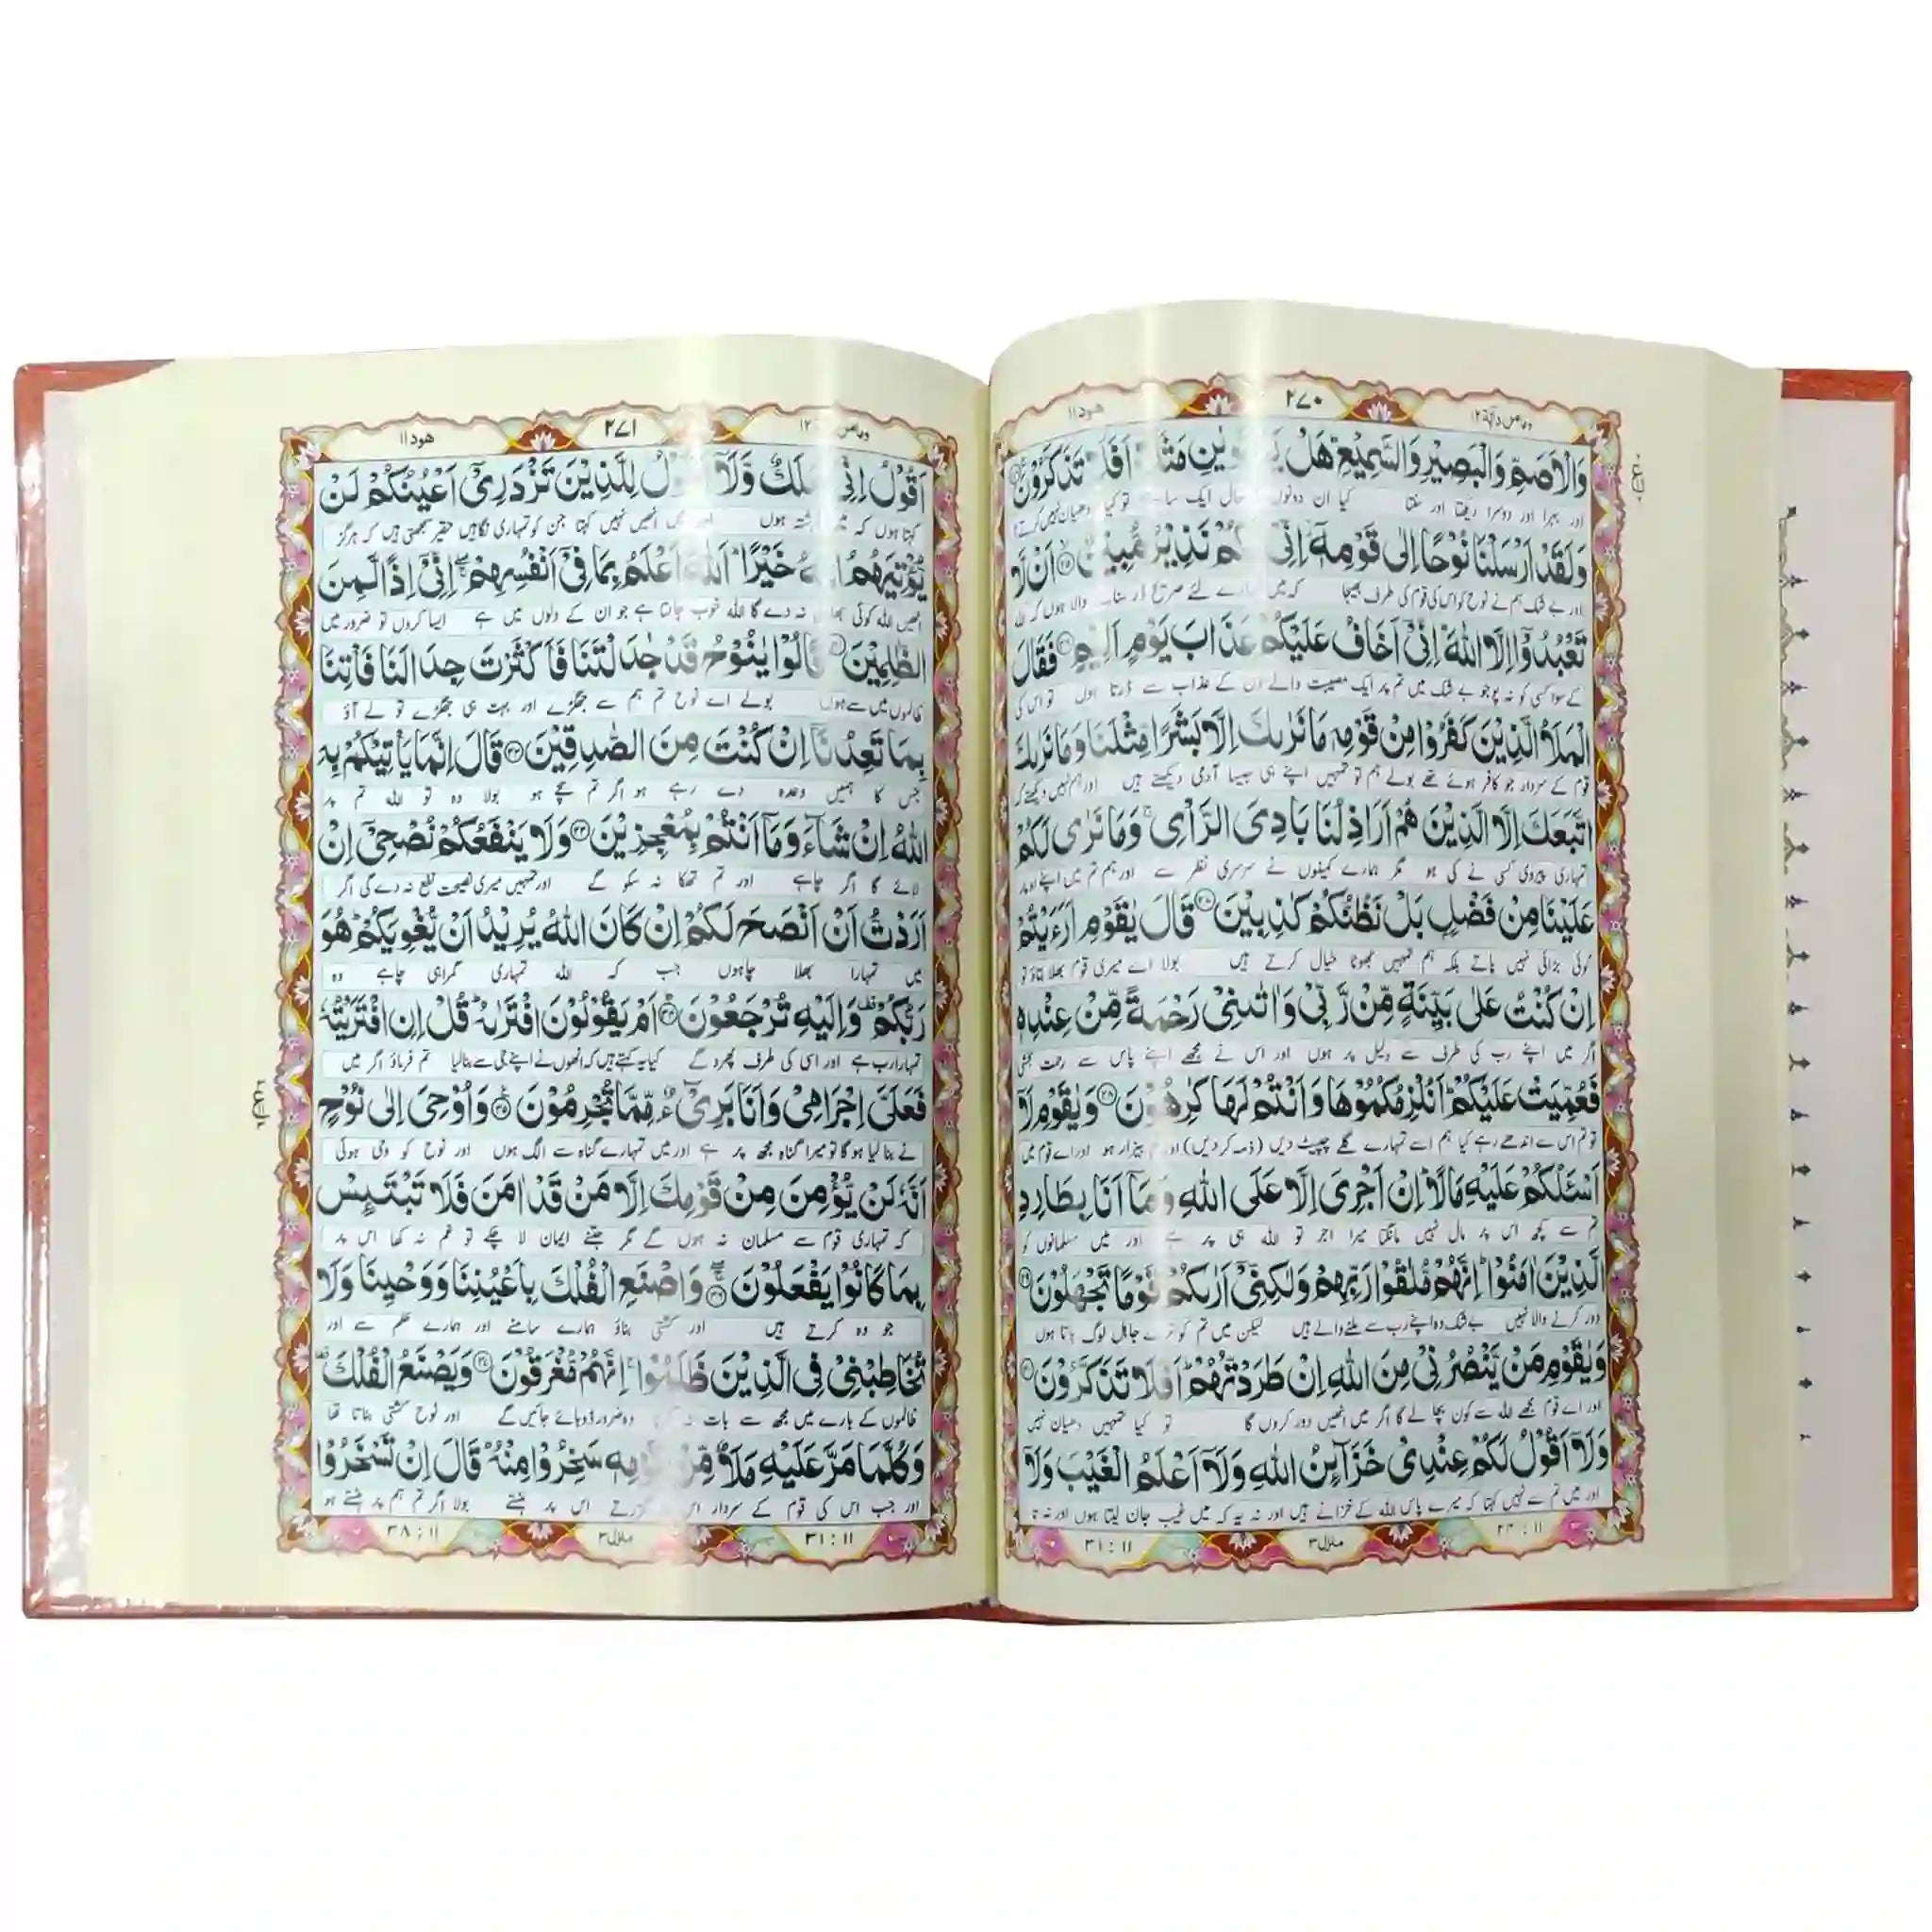 هود ۱۱
۲۷۰
ومامن دآبة ۱۲
وَالْاَصَمِّ وَالْبَصِيْرِ وَالسَّمِيْعِ هَلْ اَفَلَا تَذَكَّرُوْنَ
اور بہرا اور دوسرا دیکھتا اور سنتا کیا ان دونوں حال ایک سا تو کیا دھیان نہیں کرتے
وَلَقَدْ اَرْسَلْنَا نُوْحًا اِلٰى قَوْمِهٖۤ اِنِّىْ نَذِيْرٌ مُّبِيْنٌ ۲۵ اَنْ لَّا
اور بے شک ہم نے نوح کو اس کی قوم کی طرف بھیجا کہ میں لئے صریح ڈر سنانے والا ہوں کہ اللہ
تَعْبُدُوْۤا اِلَّا اللّٰهَ اِنِّىْۤ اَخَافُ عَلَيْكُمْ عَذَابَ يَوْمٍ اَلِيْمٍ ۲۶ فَقَالَ
کے سوا کسی کو نہ پوجو بے شک میں تم پر ایک مصیبت والے دن کے عذاب سے ڈرتا ہوں تو اس کی
الْمَلَاُ الَّذِيْنَ كَفَرُوْا مِنْ قَوْمِهٖ مَا نَرٰىكَ اِلَّا بَشَرًا مِّثْلَنَا وَمَا نَرٰىكَ
قوم کے سردار جو کافر ہوئے تھے بولے ہم تو تمہیں اپنے ہی جیسا آدمی دیکھتے ہیں اور ہم نہیں دیکھتے کہ
اتَّبَعَكَ اِلَّا الَّذِيْنَ هُمْ اَرَاذِلُنَا بَادِىَ الرَّاْىِ ۚ وَمَا نَرٰى لَكُمْ
تمہاری پیروی کسی نے کی ہو مگر ہمارے کمینوں نے سرسری نظر سے اور ہم تم میں اپنے اوپر
عَلَيْنَا مِنْ فَضْلٍ بَلْ نَظُنُّكُمْ كٰذِبِيْنَ ۲۷ قَالَ يٰقَوْمِ اَرَءَيْتُمْ
کوئی بڑائی نہیں پاتے بلکہ ہم تمہیں جھوٹا خیال کرتے ہیں بولا اے میری قوم بھلا بتاؤ تو
اِنْ كُنْتُ عَلٰى بَيِّنَةٍ مِّنْ رَّبِّىْ وَاٰتٰىنِىْ رَحْمَةً مِّنْ عِنْدِهٖ
اگر میں اپنے رب کی طرف سے دلیل پر ہوں اور اس نے مجھے اپنے پاس سے رحمت بخشی
فَعُمِّيَتْ عَلَيْكُمْ ؕ اَنُلْزِمُكُمُوْهَا وَاَنْتُمْ لَهَا كٰرِهُوْنَ ۲۸ وَيٰقَوْمِ لَاۤ
تو تم اس سے اندھے رہے کیا ہم اسے تمہارے گلے چپیٹ دیں (ذمہ کر دیں) اور بیزار ہو اور اے قوم میں
اَسْـَٔلُكُمْ عَلَيْهِ مَالًا ؕ اِنْ اَجْرِىَ اِلَّا عَلَى اللّٰهِ وَمَاۤ اَنَا بِطَارِدِ
تم سے کچھ اس پر مال نہیں مانگتا میرا اجر تو اللہ ہی پر ہے اور میں مسلمانوں کو
الَّذِيْنَ اٰمَنُوْا ؕ اِنَّهُمْ مُّلٰقُوْا رَبِّهِمْ وَلٰكِنِّىْۤ اَرٰىكُمْ قَوْمًا تَجْهَلُوْنَ ۲۹
دور کرنے والا نہیں بے شک وہ اپنے رب سے ملنے والے ہیں لیکن میں تم کو نرے جاہل لوگ پاتا ہوں
وَيٰقَوْمِ مَنْ يَّنْصُرُنِىْ مِنَ اللّٰهِ اِنْ طَرَدْتُّهُمْ ؕ اَفَلَا تَذَكَّرُوْنَ ۳۰
اور اے قوم مجھے اللہ سے کون بچا لے گا اگر میں انھیں دور کروں گا تو کیا تمہیں دھیان نہیں
وَلَاۤ اَقُوْلُ لَكُمْ عِنْدِىْ خَزَآئِنُ اللّٰهِ وَلَاۤ اَعْلَمُ الْغَيْبَ وَلَاۤ
اور میں تم سے نہیں کہتا کہ میرے پاس اللہ کے خزانے ہیں اور نہ یہ کہ میں غیب جان لیتا ہوں اور نہ
۳۱ : ۱۱
منزل ۳
۲۴ : ۱۱
هود ۱۱
۲۷۱
ومامن دآبة ۱۲
اَقُوْلُ اِنِّىْ مَلَكٌ وَّلَاۤ اَقُوْلُ لِلَّذِيْنَ تَزْدَرِىْۤ اَعْيُنُكُمْ لَنْ
کہتا ہوں کہ میں فرشتہ ہوں اور میں انھیں نہیں کہتا جن کو تمہاری نگاہیں حقیر سمجھتی ہیں کہ ہرگز
يُّؤْتِيَهُمُ اللّٰهُ خَيْرًا ؕ اَللّٰهُ اَعْلَمُ بِمَا فِىْۤ اَنْفُسِهِمْ ۖۚ اِنِّىْۤ اِذًا لَّمِنَ
انھیں اللہ کوئی بھلائی نہ دے گا اللہ خوب جانتا ہے جو ان کے دلوں میں ہے ایسا کروں تو ضرور میں
الظّٰلِمِيْنَ قَالُوْا يٰنُوْحُ قَدْ جٰدَلْتَنَا فَاَكْثَرْتَ جِدَالَنَا فَاْتِنَا
ظالموں میں سے ہوں بولے اے نوح تم ہم سے جھگڑے اور بہت ہی جھگڑے تو لے آؤ
بِمَا تَعِدُنَاۤ اِنْ كُنْتَ مِنَ الصّٰدِقِيْنَ ۳۲ قَالَ اِنَّمَا يَاْتِيْكُمْ بِهِ
جس کا ہمیں وعدہ دے رہے ہو اگر تم سچے ہو بولا وہ تو اللہ تم پر
اللّٰهُ اِنْ شَآءَ وَمَاۤ اَنْتُمْ بِمُعْجِزِيْنَ ۳۳ وَلَا يَنْفَعُكُمْ نُصْحِىْۤ اِنْ
لائے گا اگر چاہے اور تم تھکا نہ سکو گے اور تمہیں میری نصیحت نفع نہ دے گی اگر
اَرَدْتُّ اَنْ اَنْصَحَ لَكُمْ اِنْ كَانَ اللّٰهُ يُرِيْدُ اَنْ يُّغْوِيَكُمْ ؕ هُوَ
میں تمہارا بھلا چاہوں جب کہ اللہ تمہاری گمراہی چاہے وہ
رَبُّكُمْ وَاِلَيْهِ تُرْجَعُوْنَ ۳۴ اَمْ يَقُوْلُوْنَ افْتَرٰىهُ ؕ قُلْ اِنِ افْتَرَيْتُهٗ
تمہارا رب ہے اور اسی کی طرف پھرو گے کیا یہ کہتے ہیں کہ انھوں نے اپنے جی سے بنا لیا تم فرماؤ اگر میں
فَعَلَىَّ اِجْرَامِىْ وَاَنَا بَرِىْٓءٌ مِّمَّا تُجْرِمُوْنَ ۳۵ وَاُوْحِىَ اِلٰى نُوْحٍ
نے بنا لیا ہو گا تو میرا گناہ مجھ پر ہے اور میں تمہارے گناہ سے الگ ہوں اور نوح کو وحی ہوئی
اَنَّهٗ لَنْ يُّؤْمِنَ مِنْ قَوْمِكَ اِلَّا مَنْ قَدْ اٰمَنَ فَلَا تَبْتَئِسْ
کہ تمہاری قوم سے مسلمان نہ ہوں گے مگر جتنے ایمان لا چکے تو غم نہ کھا اس پر
بِمَا كَانُوْا يَفْعَلُوْنَ ۳۶ وَاصْنَعِ الْفُلْكَ بِاَعْيُنِنَا وَوَحْيِنَا وَلَا
جو وہ کرتے ہیں اور کشتی بناؤ ہمارے سامنے اور ہمارے حکم سے اور
تُخَاطِبْنِىْ فِى الَّذِيْنَ ظَلَمُوْا ۚ اِنَّهُمْ مُّغْرَقُوْنَ ۳۷ وَيَصْنَعُ الْفُلْكَ
ظالموں کے بارے میں مجھ سے بات نہ کرنا وہ ضرور ڈوبائے جائیں گے اور نوح کشتی بناتا تھا
وَكُلَّمَا مَرَّ عَلَيْهِ مَلَاٌ مِّنْ قَوْمِهٖ سَخِرُوْا مِنْهُ ؕ قَالَ اِنْ تَسْخَرُوْا
اور جب اس کی قوم کے سردار اس پر گزرتے اس پر ہنستے بولا اگر تم ہم پر ہنستے ہو
۳۸ : ۱۱
منزل ۳
۳۱ : ۱۱